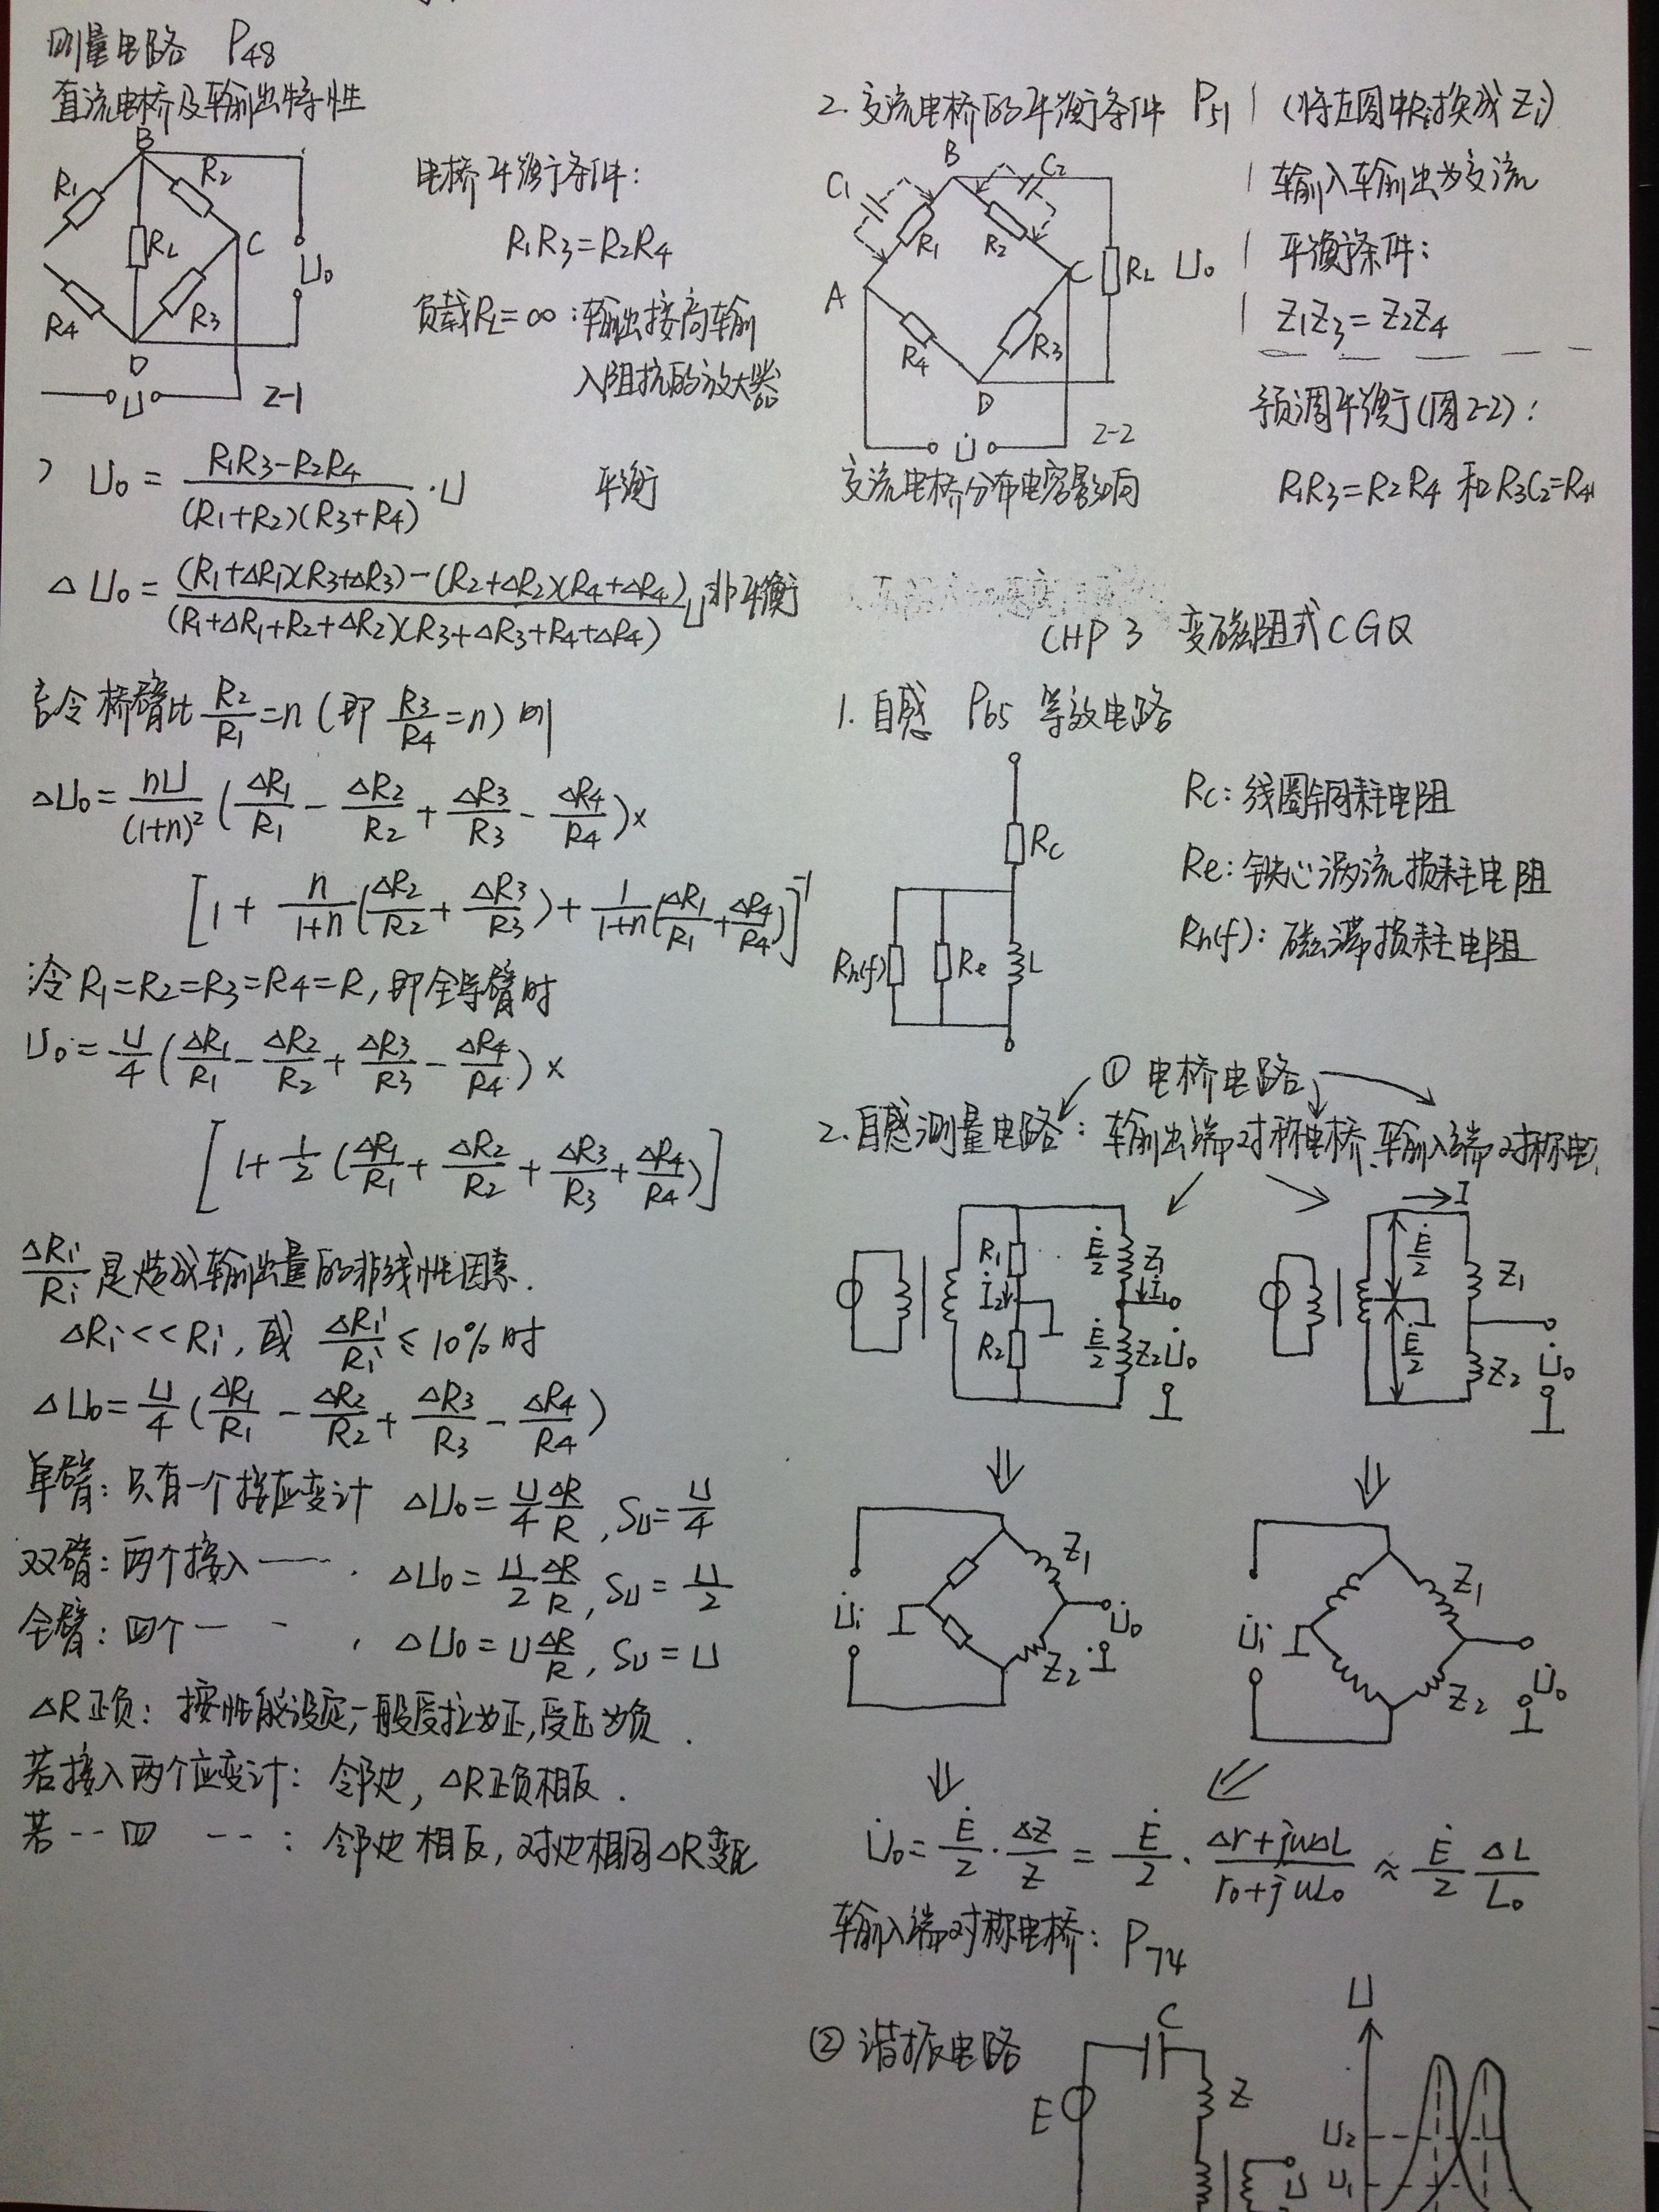 测量电路 P48
直流电桥及输出特性
B
R1
R2
RL
C
U0
R4
R3
D
U
2-1
电桥平衡条件:
R1R3=R2R4
负载RL=∞:输出接高输
入阻抗的放大器
U0 = (R1R3-R2R4)/((R1+R2)(R3+R4)) ·U 平衡
ΔU0 = ((R1+ΔR1)(R3+ΔR3)-(R2+ΔR2)(R4+ΔR4))/((R1+ΔR1+R2+ΔR2)(R3+ΔR3+R4+ΔR4)) U 非平衡
令桥臂比 R2/R1=n (即 R3/R4=n) 则
ΔU0= nU/(1+n)² (ΔR1/R1 - ΔR2/R2 + ΔR3/R3 - ΔR4/R4)×
[1 + n/(1+n) (ΔR2/R2 + ΔR3/R3) + 1/(1+n) (ΔR1/R1 + ΔR4/R4)]⁻¹
令 R1=R2=R3=R4=R, 即全等臂时
U0= U/4 (ΔR1/R1 - ΔR2/R2 + ΔR3/R3 - ΔR4/R4) ×
[1+ 1/2 (ΔR1/R1 + ΔR2/R2 + ΔR3/R3 + ΔR4/R4)]
ΔRi/Ri 是造成输出量的非线性因素.
ΔRi<<Ri, 或 ΔRi/Ri ≤ 10% 时
ΔU0= U/4 (ΔR1/R1 - ΔR2/R2 + ΔR3/R3 - ΔR4/R4)
单臂: 只有一个接应变计 ΔU0= U/4 ΔR/R, SU= U/4
双臂: 两个接入 ——. ΔU0= U/2 ΔR/R, SU= U/2
全臂: 四个 — - , ΔU0= U ΔR/R, SU= U
ΔR正负: 按性能设定,一般受拉为正,受压为负.
若接入两个应变计: 邻边, ΔR正负相反.
若--四 --: 邻边相反, 对边相同ΔR变化
2.交流电桥的平衡条件 P51 (将左图中Ri换成Zi)
输入输出为交流
平衡条件:
Z1Z3=Z2Z4
B
C1
C2
R1
R2
A
C
RL
U0
R4
R3
D
U
2-2
预调平衡(图2-2):
交流电桥分布电容影响
R1R3=R2R4 和 R3C2=R4
CHP 3 变磁阻式CGQ
1. 自感 P65 等效电路
Rc
Rh(f)
Re
L
Rc: 线圈铜耗电阻
Re: 铁心涡流损耗电阻
Rh(f): 磁滞损耗电阻
① 电桥电路
2.自感测量电路: 输出端对称电桥、输入端对称电
R1
Ė/2
Z1
İ2
İ1
R2
Ė/2
Z2
U̇0
I
Ė/2
Z1
Ė/2
Z2
U̇0
U̇i
Z1
Z2
U̇0
U̇i
Z1
Z2
U̇0
U̇0= Ė/2 · ΔZ/Z = Ė/2 · (Δr+jωΔL)/(r0+jωL0) ≈ Ė/2 ΔL/L0
输入端对称电桥: P74
② 谐振电路
C
E
Z
U
U
U2
U1